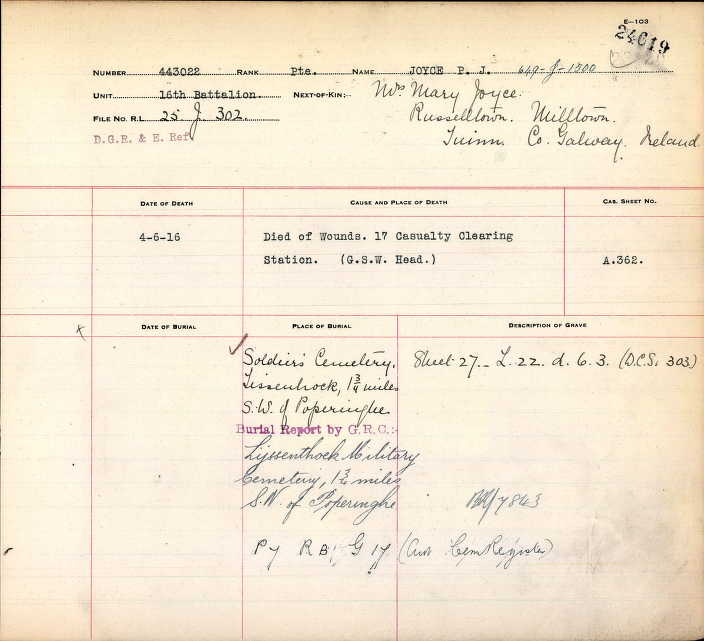 E-103
24619
NUMBER 443022 RANK Pte. NAME JOYCE P. J. 649-J-1500
UNIT 16th Battalion. NEXT-OF-KIN:- Mrs Mary Joyce.
FILE NO. R.L. 25 J. 302. Russelltown. Milltown.
D.G.R. & E. Ref Co. Galway. Ireland
DATE OF DEATH CAUSE AND PLACE OF DEATH CAS. SHEET NO.
4-6-16 Died of Wounds. 17 Casualty Clearing
Station. (G.S.W. Head.) A.362.
x DATE OF BURIAL PLACE OF BURIAL DESCRIPTION OF GRAVE
Soldiers' Cemetery, Sheet 27. L. 22. d. 6. 3. (D.C.S. 303)
Lissenhock, 1 3/4 miles
S.W. of Poperinghe
Burial Report by G.R.C.:-
Lijssenthoek Military
Cemetery, 1 3/4 miles
S.W. of Poperinghe 7843
Py R B G 17 (Cem Register)